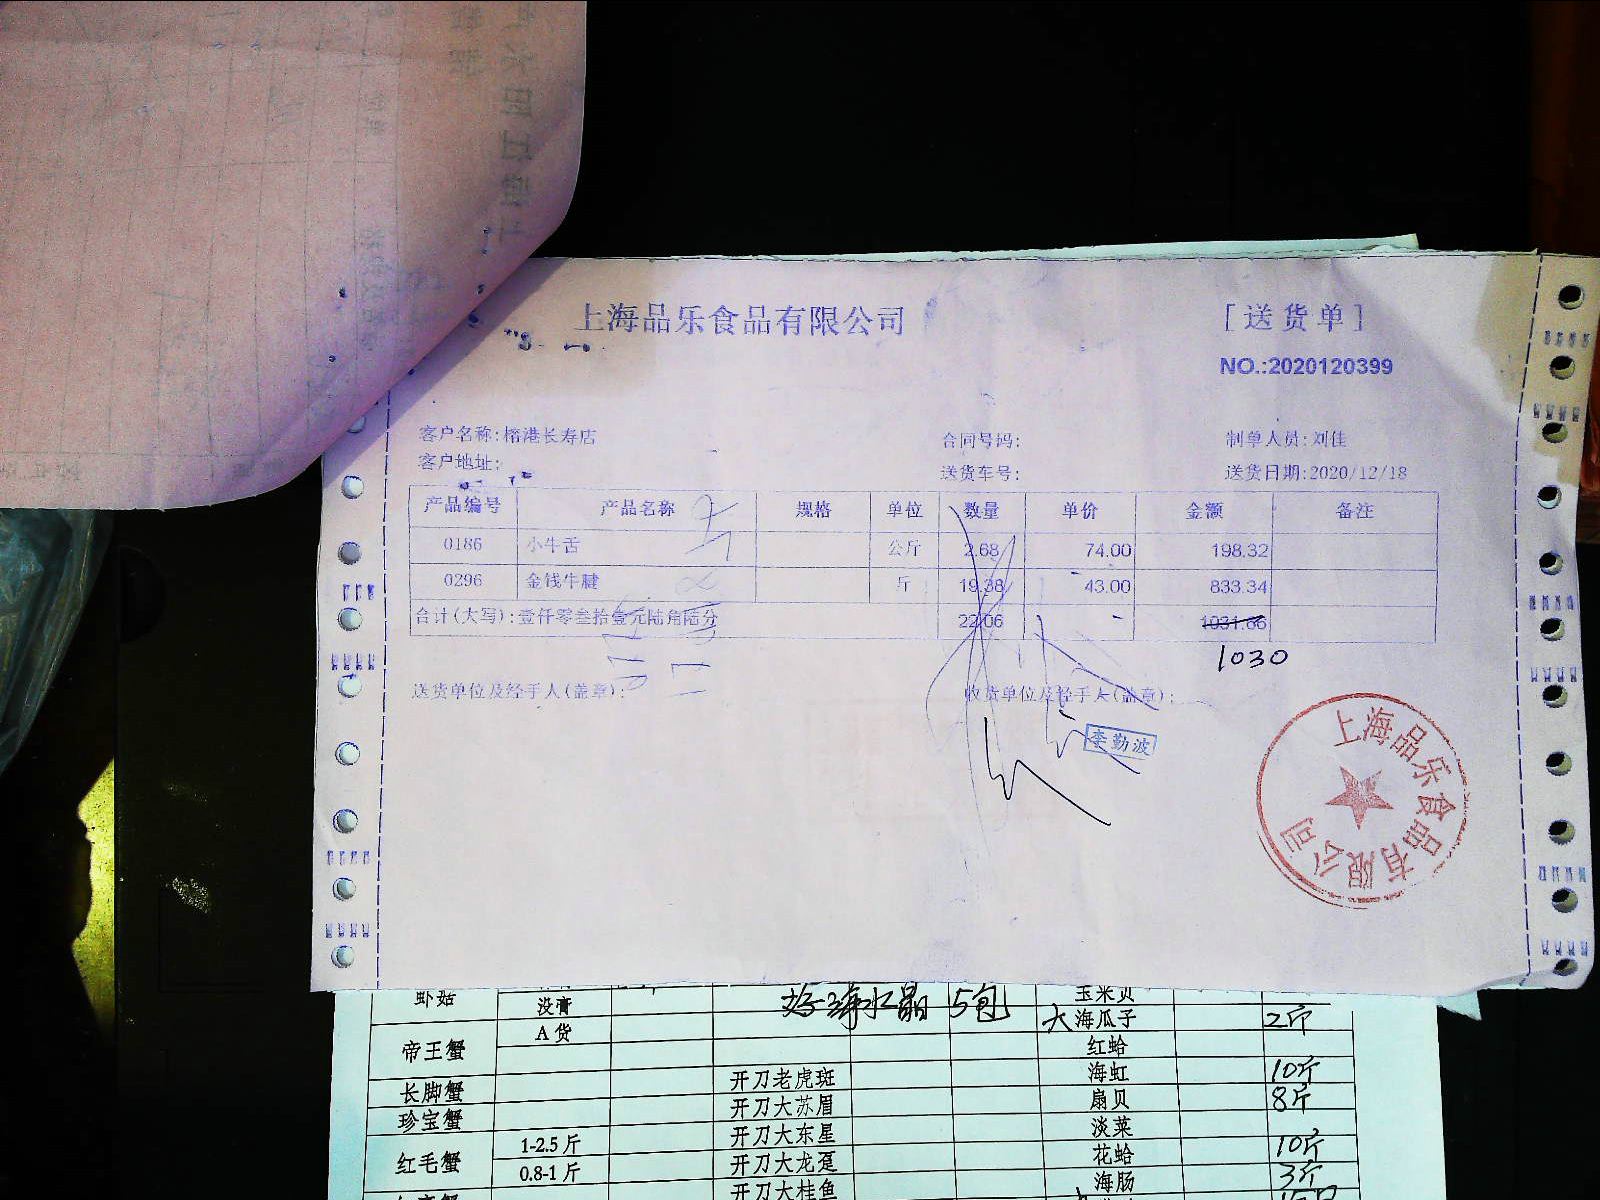 上海品乐食品有限公司
[送货单]
NO.:2020120399
客户名称:榕港长寿店 合同号码: 制单人员:刘佳
客户地址: 送货车号: 送货日期:2020/12/18
产品编号 产品名称 规格 单位 数量 单价 金额 备注
0186 小牛舌 公斤 2.68 74.00 198.32
0296 金钱牛腱 斤 19.38 43.00 833.34
合计(大写):壹仟零叁拾壹元陆角陆分 22.06 1031.66
1030
送货单位及经手人(盖章): 收货单位及经手人(盖章):
李勤波
上海品乐食品有限公司
虾菇 没膏 水晶 5包 玉米贝
A货 大海瓜子 2斤
帝王蟹 红蛤
长脚蟹 开刀老虎斑 海虹 10斤
珍宝蟹 开刀大苏眉 扇贝 8斤
开刀大东星 淡菜
红毛蟹 1-2.5斤 开刀大龙趸 花蛤 10斤
0.8-1斤 开刀大桂鱼 海肠 3斤